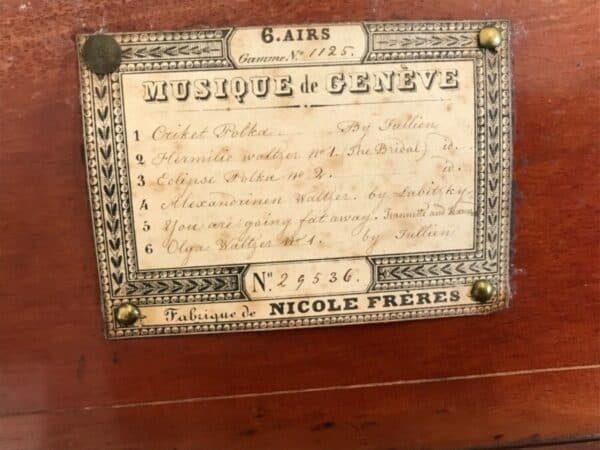 6. AIRS
Gamme No. 1125.
MUSIQUE de GENÈVE
1 Criket Polka By Jullien
2 Hermilie waltzer No 1. (The Bridal) id.
3 Eclipse Polka No 2. id.
4 Alexandrinen Waltzer. by Labitzky
5 You are going far away. Jeannette and
6 Olga Waltzer No 1. by Jullien
No. 29536.
Fabrique de NICOLE FRÈRES